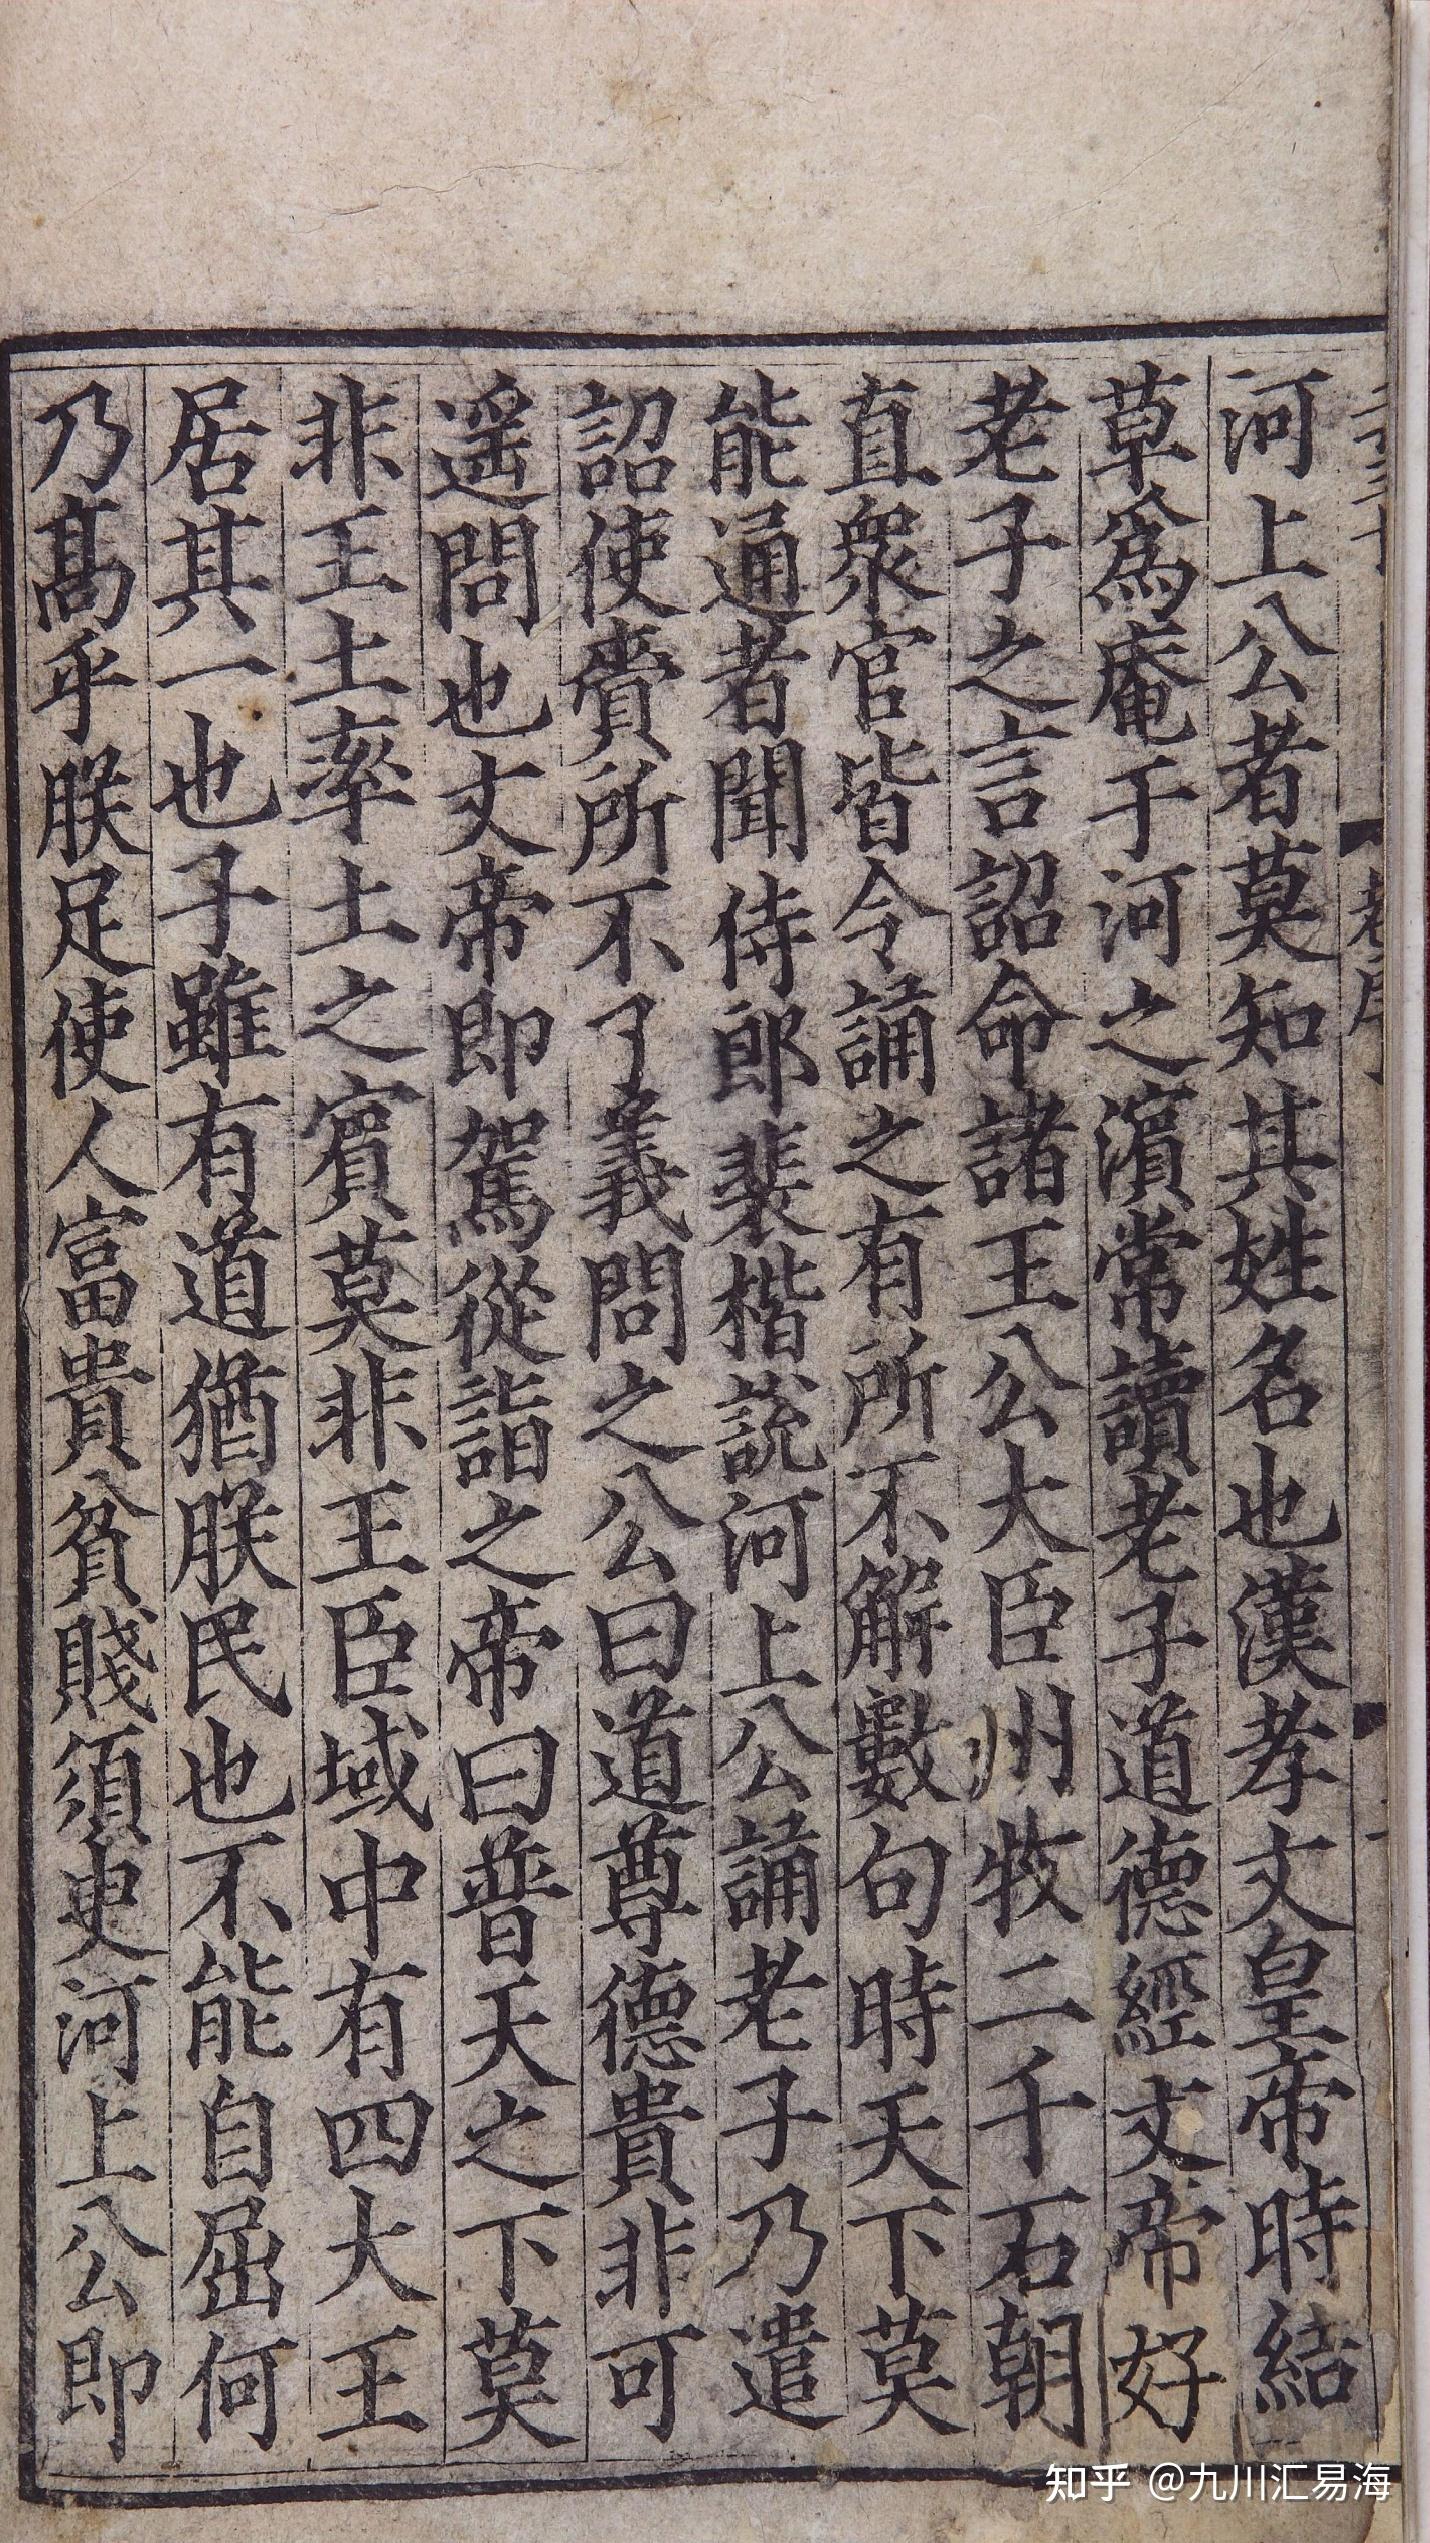 河上公者莫知其姓名也漢孝文皇帝時結
草爲庵于河之濱常讀老子道德經文帝好
老子之言詔命諸王公大臣州牧二千石朝
直衆官皆令誦之有所不解數句時天下莫
能通者聞侍郎裴楷說河上公誦老子乃遣
詔使賫所不了義問之公曰道尊德貴非可
遥問也文帝即駕從詣之帝曰普天之下莫
非王土率土之賓莫非王臣域中有四大王
居其一也子雖有道猶朕民也不能自屈何
乃髙乎朕足使人富貴貧賤須臾河上公即
知乎 @九川汇易海